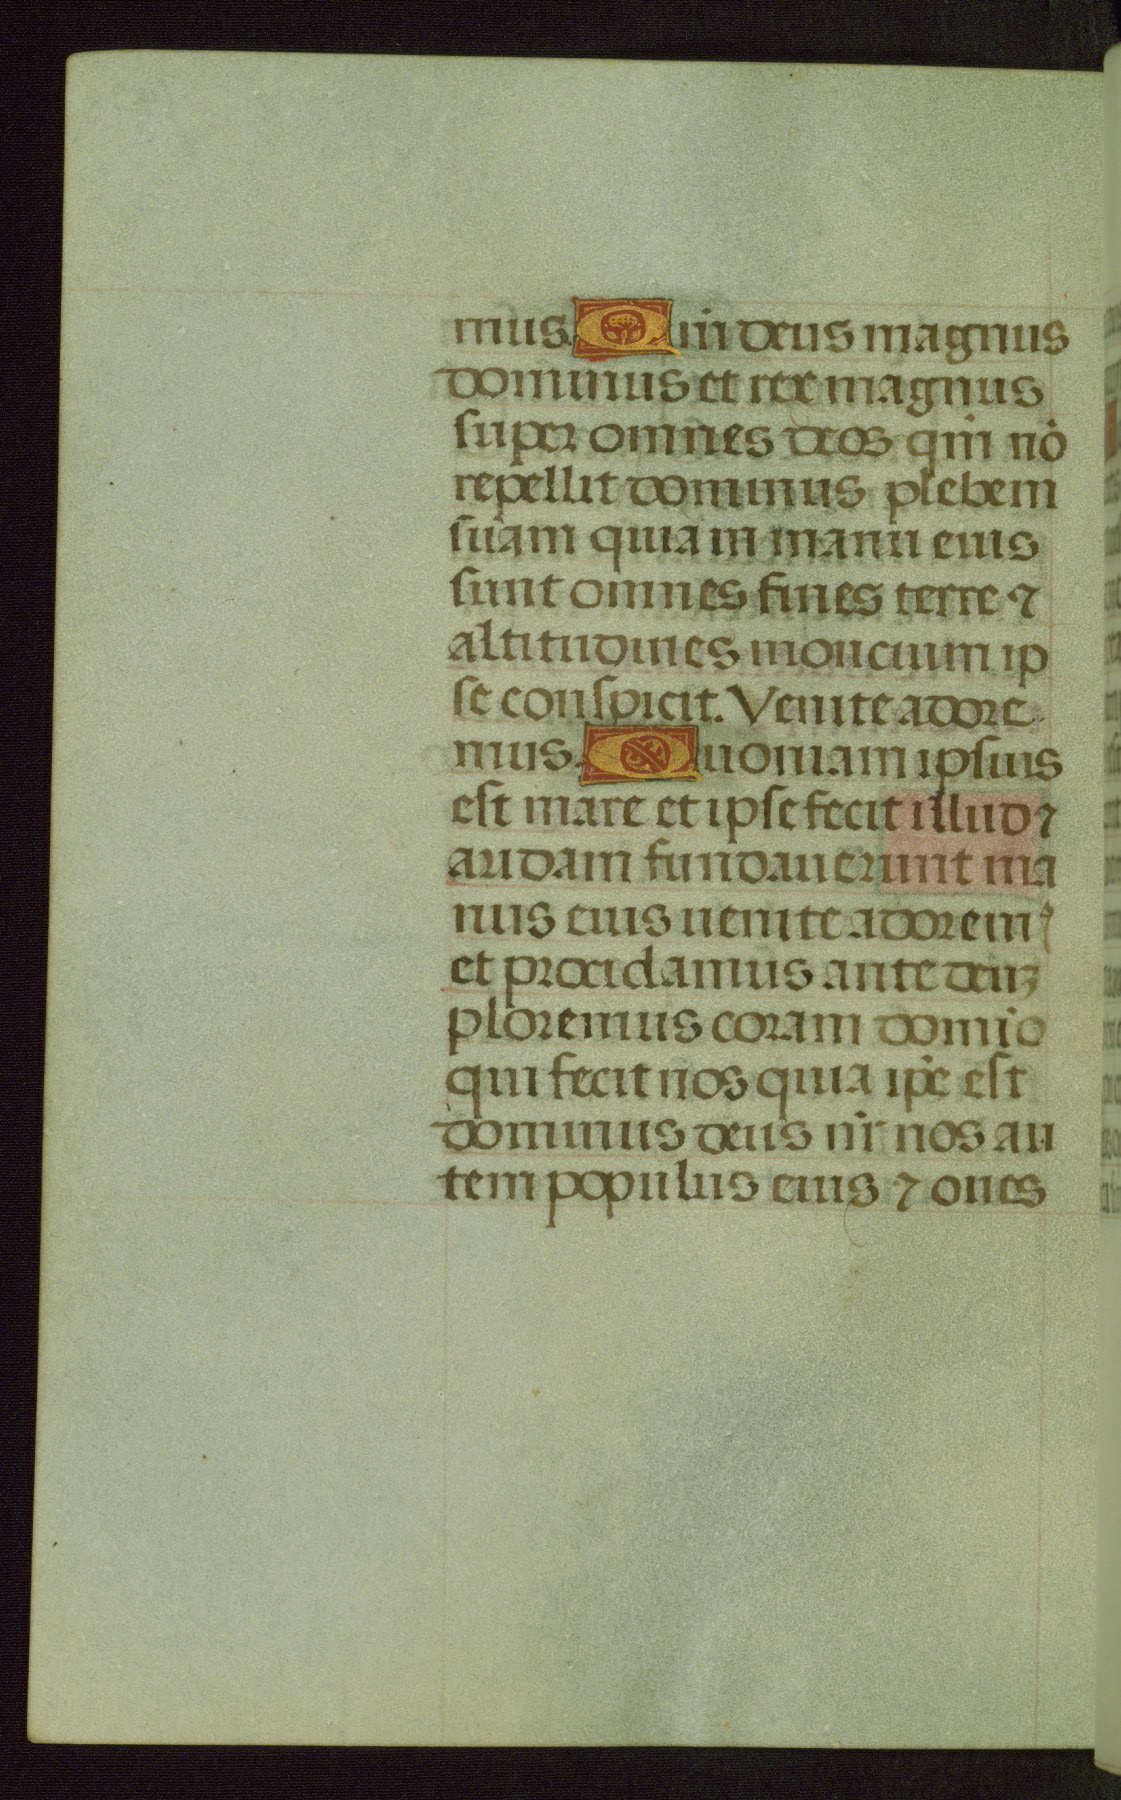 mus. Qm̄ deus magnus
dominus et rex magnus
super omnes deos qm̄ nō
repellit dominus plebem
suam quia in manu eius
sunt omnes fines terre ⁊
altitudines moncium ip
se conspicit. Venite adore
mus. Quoniam ipsius
est mare et ipse fecit illud ⁊
aridam fundauerunt ma
nus eius uenite adoremꝰ
et procidamus ante deuꝫ
ploremus coram domīo
qui fecit nos quia ip̄e est
dominus deus nr̄ nos au
tem populus eius ⁊ oues